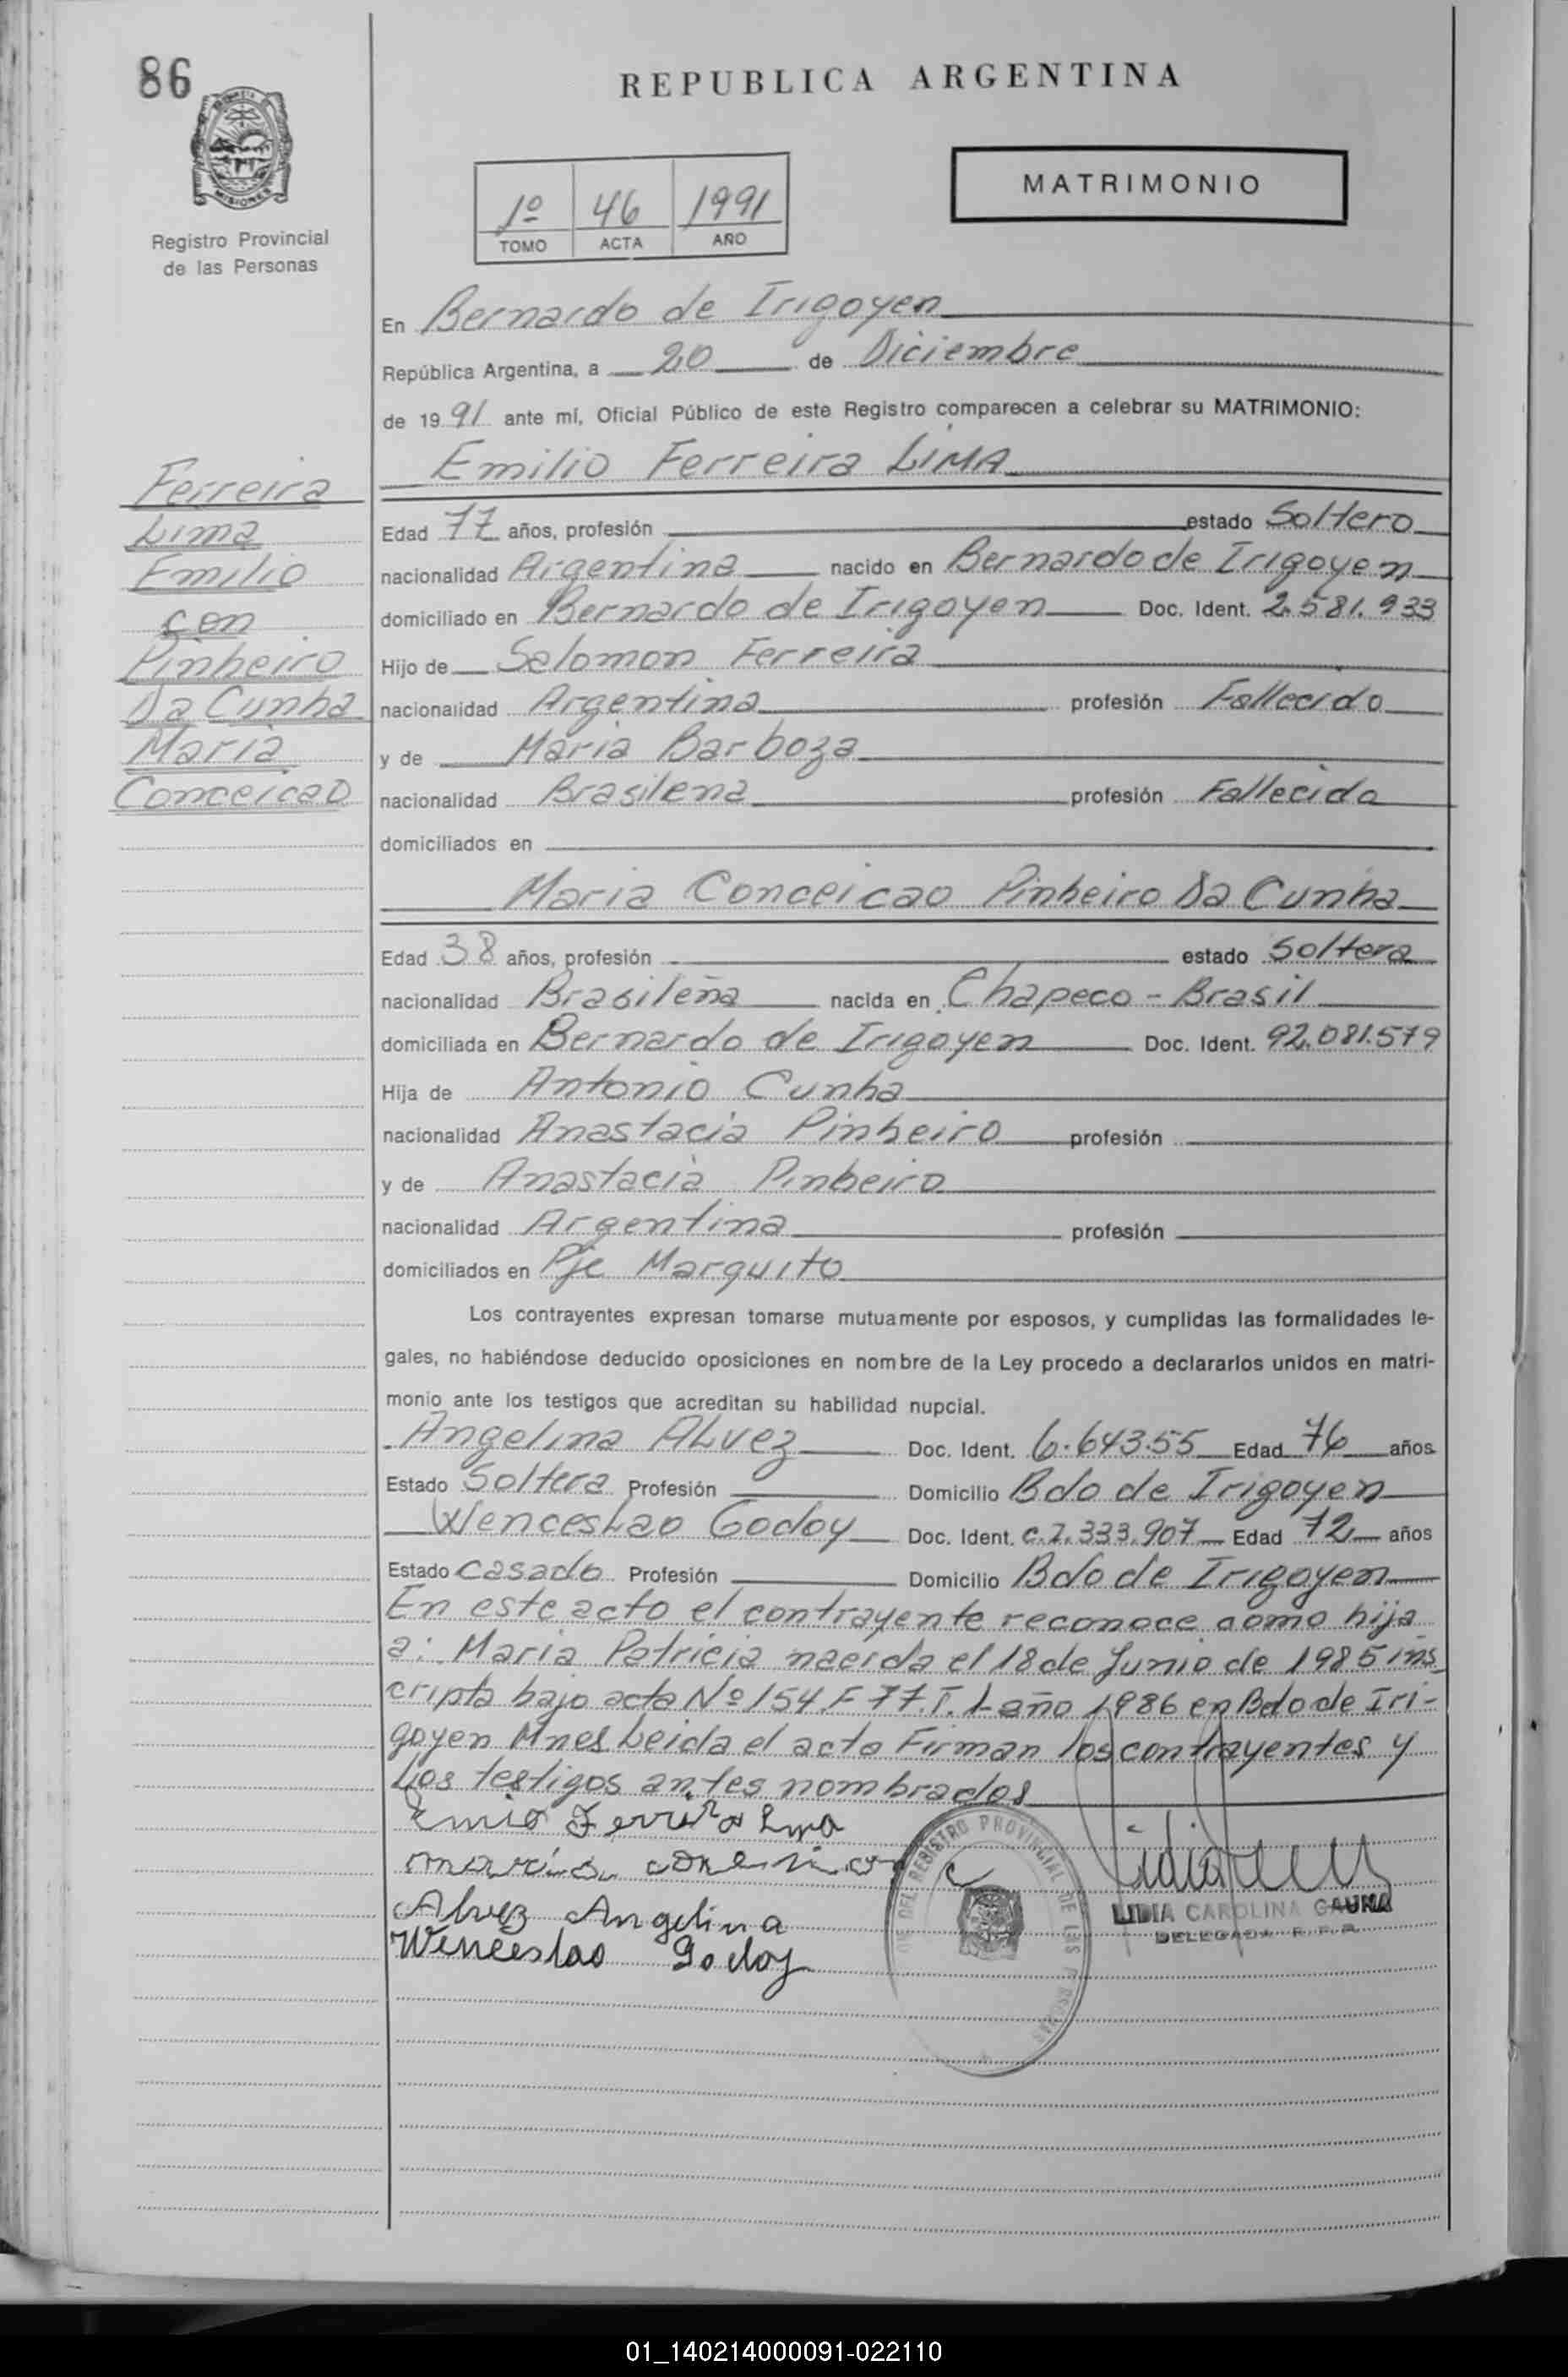 86
REPUBLICA ARGENTINA
MISIONES
Registro Provincial
de las Personas
1º 46 1991
TOMO ACTA AÑO
MATRIMONIO
En Bernardo de Irigoyen
República Argentina, a 20 de Diciembre
de 1991 ante mí, Oficial Público de este Registro comparecen a celebrar su MATRIMONIO:
Emilio Ferreira LIMA
Ferreira
Lima
Emilio
con
Pinheiro
Da Cunha
Maria
Conceicao
Edad 77 años, profesión estado Soltero
nacionalidad Argentina nacido en Bernardo de Irigoyen
domiciliado en Bernardo de Irigoyen Doc. Ident. 2.581.933
Hijo de Salomon Ferreira
nacionalidad Argentina profesión Fallecido
y de Maria Barboza
nacionalidad Brasilena profesión Fallecida
domiciliados en
Maria Conceicao Pinheiro Da Cunha
Edad 38 años, profesión estado Soltera
nacionalidad Brasileña nacida en Chapeco - Brasil
domiciliada en Bernardo de Irigoyen Doc. Ident. 92.081.579
Hija de Antonio Cunha
nacionalidad Anastacia Pinheiro profesión
y de Anastacia Pinheiro
nacionalidad Argentina profesión
domiciliados en Pje Marquito
Los contrayentes expresan tomarse mutuamente por esposos, y cumplidas las formalidades le-
gales, no habiéndose deducido oposiciones en nombre de la Ley procedo a declararlos unidos en matri-
monio ante los testigos que acreditan su habilidad nupcial.
Angelina ALvez Doc. Ident. 6.643.55 Edad 76 años
Estado Soltera Profesión Domicilio Bdo de Irigoyen
WencesLao Godoy Doc. Ident. C.I. 333.907 Edad 72 años
Estado Casado Profesión Domicilio Bdo de Irigoyen
En este acto el contrayente reconoce como hija
a: Maria Patricia nacida el 18 de Junio de 1985 ins
cripta bajo acta Nº 154. F 77. T. 1 año 1986 en Bdo de Iri-
goyen Mnes Leida el acta Firman los contrayentes y
Los testigos antes nombrados
Alvez Angelina
Wenceslao Godoy
DEL REGISTRO PROVINCIAL DE LAS PERSONAS
LIDIA CAROLINA GAUNA
DELEGADA R.P.P.
01_140214000091-022110